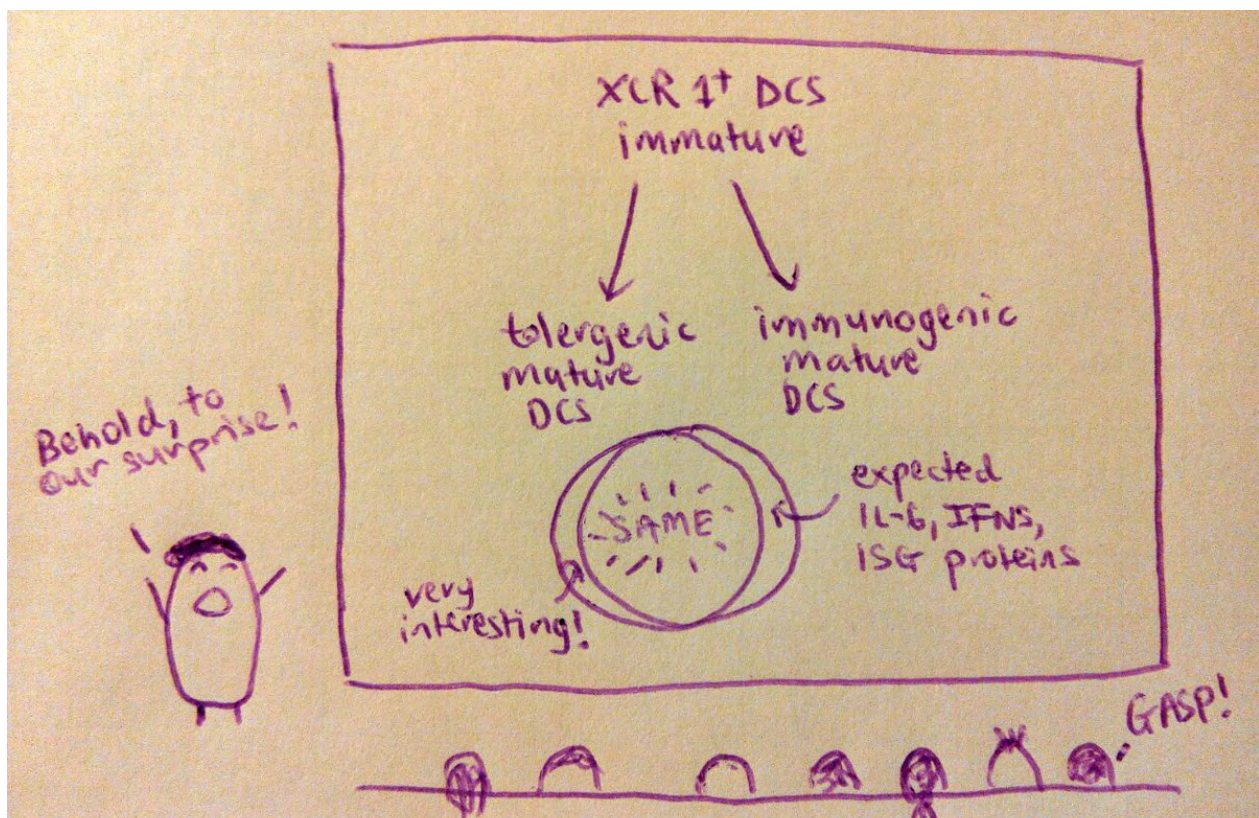 XCR 1⁺ DCS
immature
tolergenic
mature
DCS
immunogenic
mature
DCS
Behold, to
our surprise!
SAME
expected
IL-6, IFNS,
ISG proteins
very
interesting!
GASP!